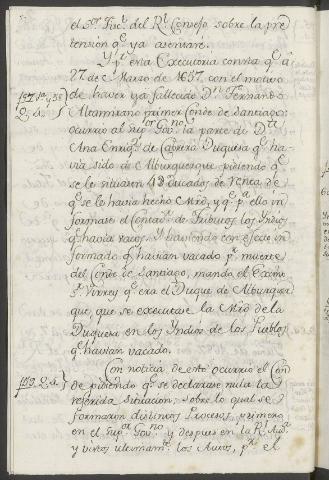 el Sor. Fisc.l del Rl. Consejo sobre la pre
tension qe. ya asentari.
Y pr. esta Executoria consta qe. á
27 de Marzo de 1657. con el motivo
de haver ya fallecido Dn. Fernando
Altamirano primer Conde de Santiago:
ocurrio al supor. Govno. la parte de Dña.
Ana Enriqz. de Cabrera Duquesa qe. ha
via sido de Alburquerque pidiendo qe.
se le situasen Ducados de renta de
qe. se le havia hecho Mrd, y qe. pa. ello in
formase el Contadr. de Tributos los Yndios
qe. havia vacos. Y haviendo con efecto in
formado qe. havian vacado pr. muerte
del Conde de Santiago, mandó el Exmo.
Sr. Virrey qe. era el Duque de Alburquer
que, que se executase la Mrd de la
Duquesa en los Yndios de los Pueblos
qe. havian vacado.
Con noticia de esto ocurrió el Con
de pidiendo qe. se declarase nula la
referida situacion; sobre lo qual se
formaron distintos Procesos, primero
en el Supor. Govno. y despues en la Rl. Auda.
y vistos ultimamte. los Autos, pr. el